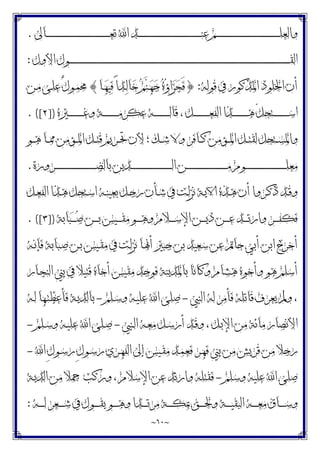 والعلم عند الله تعالى .
القول الأول :
أن الخلود المذكور في قوله: ﴿ فَجَزَاؤُهُ جَهَنَّمُ خَالِدًا فِيهَا ﴾ محمول على من
استحل هذا الفعل ، قاله عكرمة وغيره ([٢]) .
والمستحل لقتل المؤمن كافر ولا شك ؛ لأن تحريم قتل المؤمن مما هو
معلوم من الدين بالضرورة .
وقد ذكروا أن هذه الآية نزلت في شأن رجل بعينه استحل هذا الفعل
فكفر وارتد عن دين الإسلام وهو مقيس بن صبابة ([٣]) .
أخرج ابن أبي حاتم عن سعيد بن جبير أنها نزلت في مقيس بن صبابة فإنه
أسلم هو وأخوه هشام وكانا بالمدينة فوجد مقيس أخاه قتيلا في بني النجار
، ولم يعرف قاتله فأمر له النبي -صلى الله عليه وسلم- بالدية فأعطتها له
الأنصار مائة من الإبل ، وقد أرسل معه النبي -صلى الله عليه وسلم-
رجلا من قريش من بني فهر فعمد مقيس إلى الفهري رسول رسول الله -
صلى الله عليه وسلم- فقتله وارتد عن الإسلام ، وركب جملا من الدية
وساق معه البقية ولحق بمكة مرتدا وهو يقول في شعر له :
~١٠~